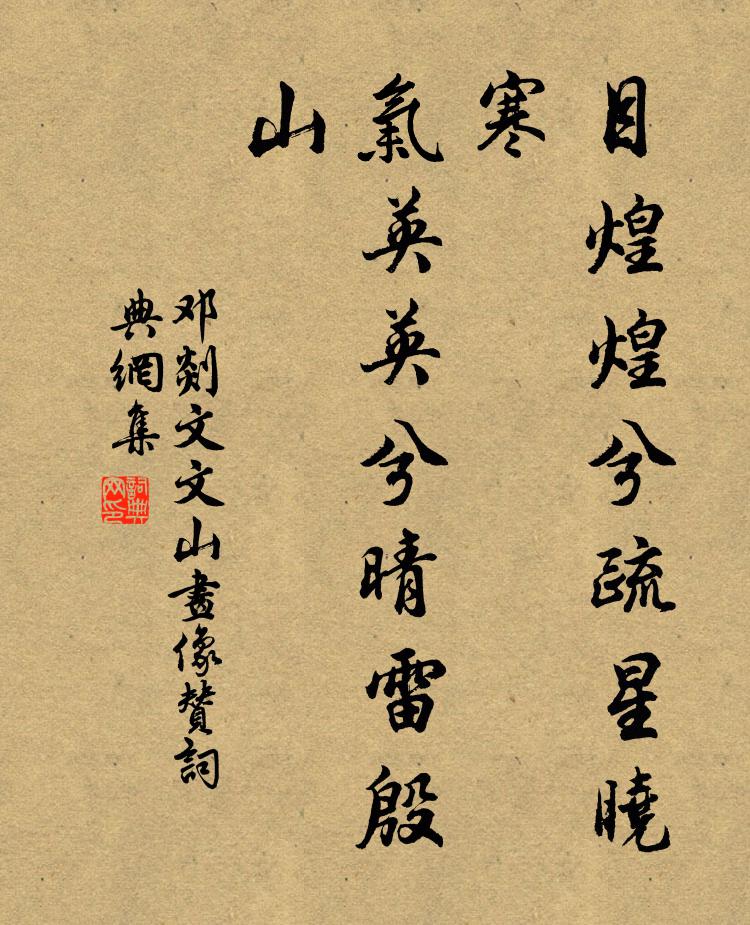 目煌煌兮疏星曉
寒
氣英英兮晴雷殷
山
邓剡文文山畫像赞詞
典網集
詞典网印